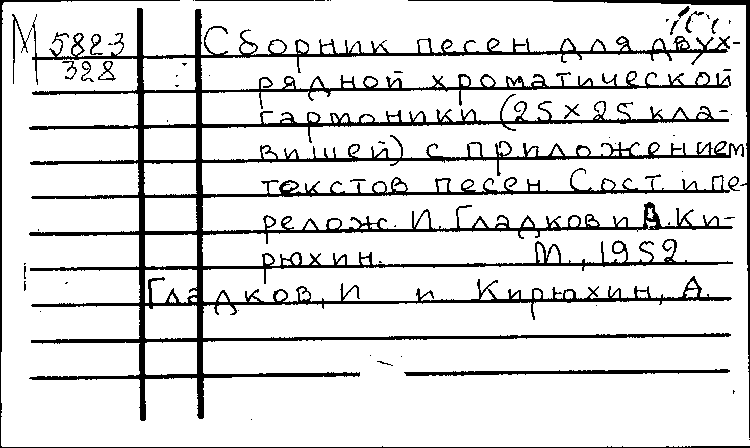 М 5823
328
Сборник песен для двух-
рядной хроматической
гармоники (25×25 кла-
вишей) с приложением
текстов песен. Сост. и пе-
релож. И. Гладков и А. Ки-
рюхин. М., 1952.
Гладков, И и Кирюхин, А.